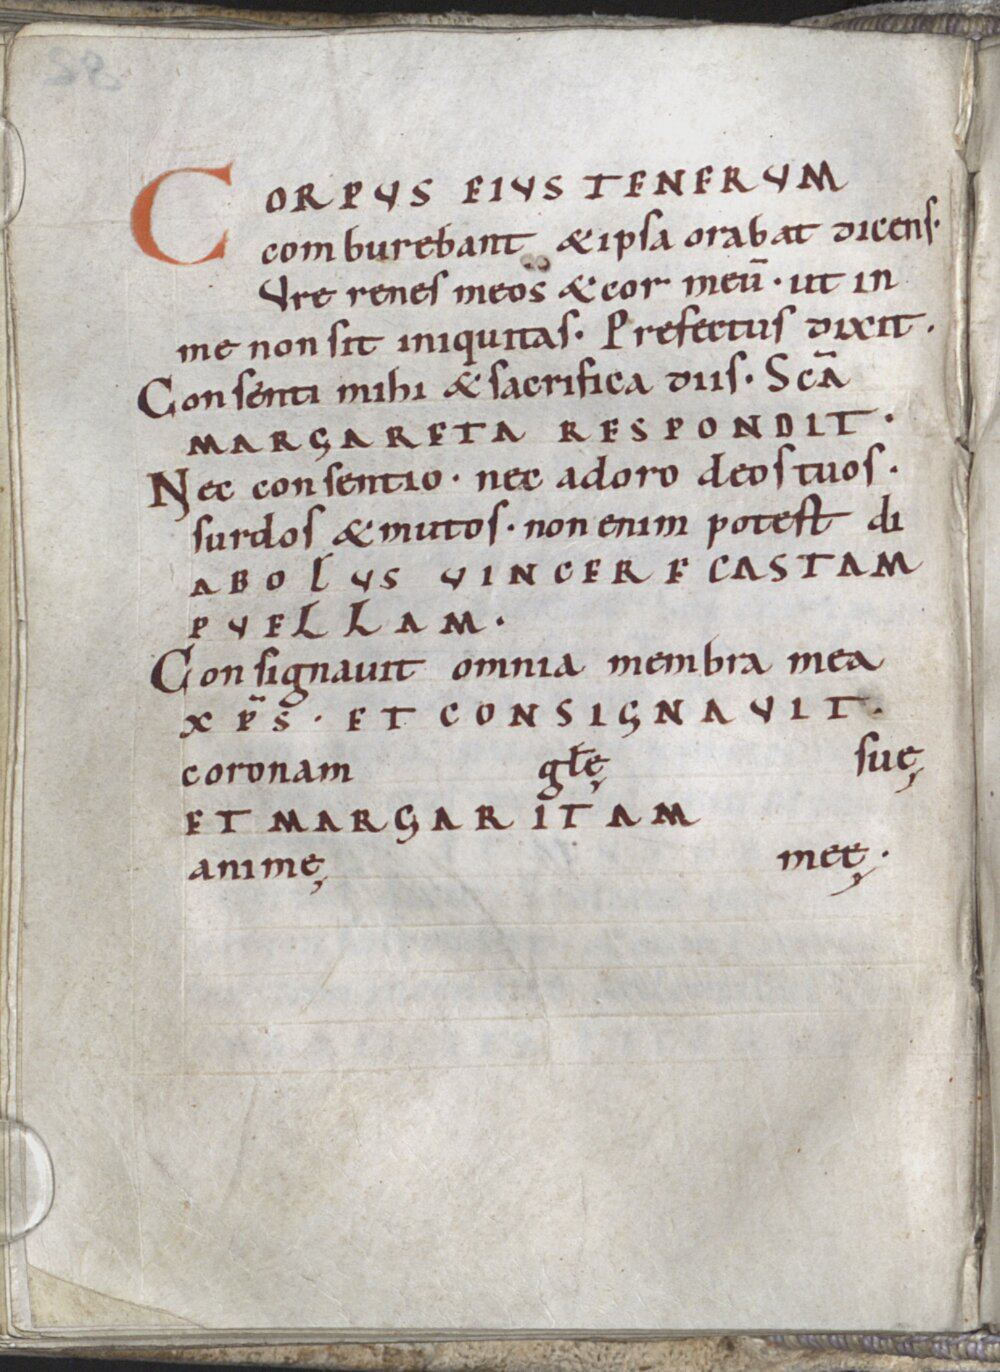 CORPUS EIUS TENERUM
comburebant & ipsa orabat dicens·
Ure renes meos & cor meū· ut in
me non sit iniquitas· Prefectus dixit.
Consenti mihi & sacrifica diis· Scā
MARGARETA RESPONDIT·
Nec consentio· nec adoro deos tuos·
surdos & mutos· non enim potest di
ABOLUS VINCERE CASTAM
PUELLAM·
Consignavit omnia membra mea
XP̄S· ET CONSIGNAVIT·
coronam glę suę
ET MARGARITAM
animę meę·